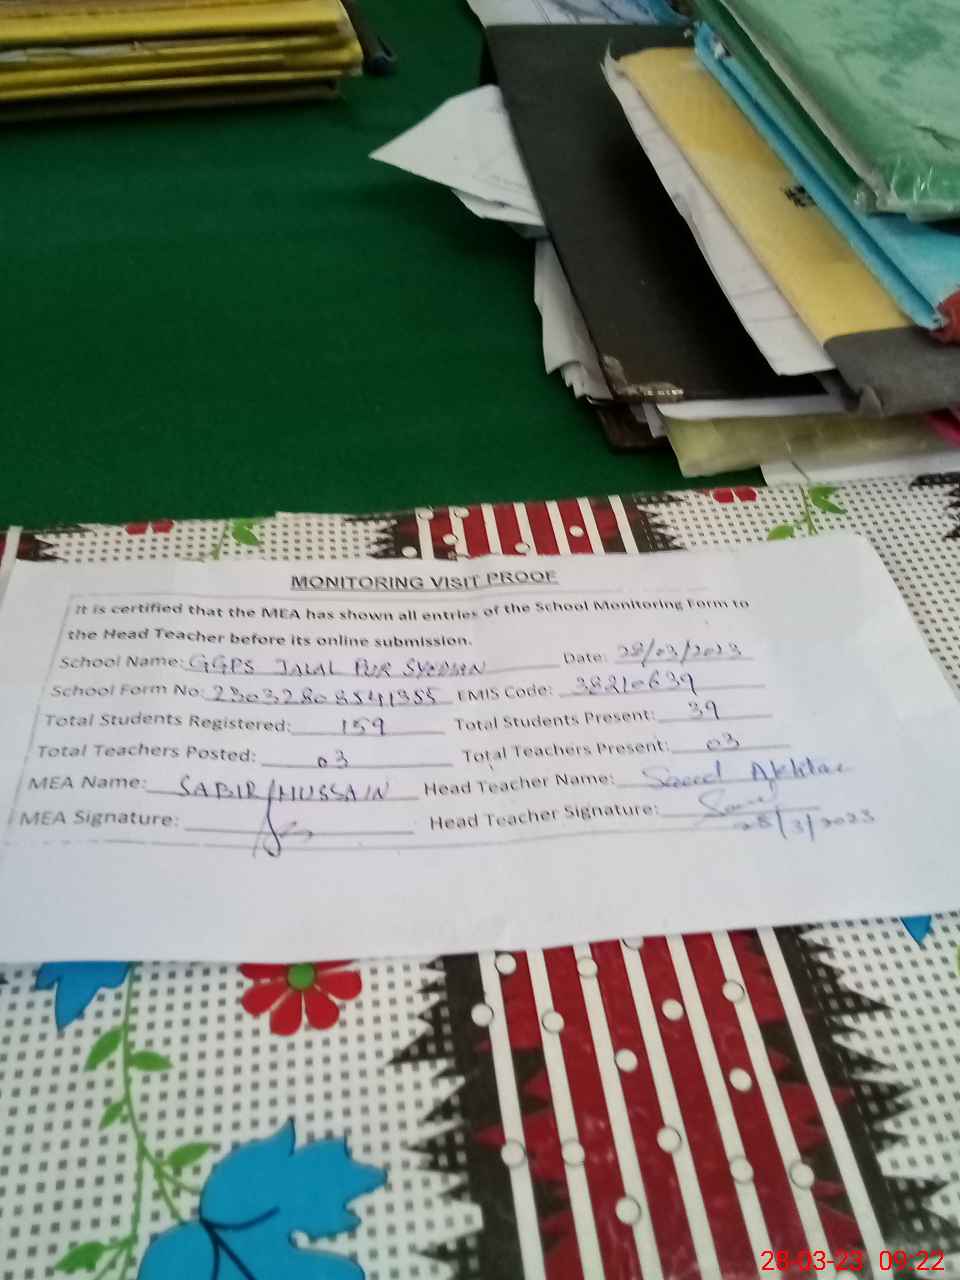 MONITORING VISIT PROOF
It is certified that the MEA has shown all entries of the School Monitoring Form to
the Head Teacher before its online submission.
School Name: GGPS JALAL PUR SYEDAN Date: 28/03/2023
School Form No: 23032808541355 EMIS Code: 38210639
Total Students Registered: 159 Total Students Present: 39
Total Teachers Posted: 03 Total Teachers Present: 03
MEA Name: SABIR HUSSAIN Head Teacher Name: Saeed Akhtar
MEA Signature: Head Teacher Signature:
28/3/2023
28-03-23 09:22